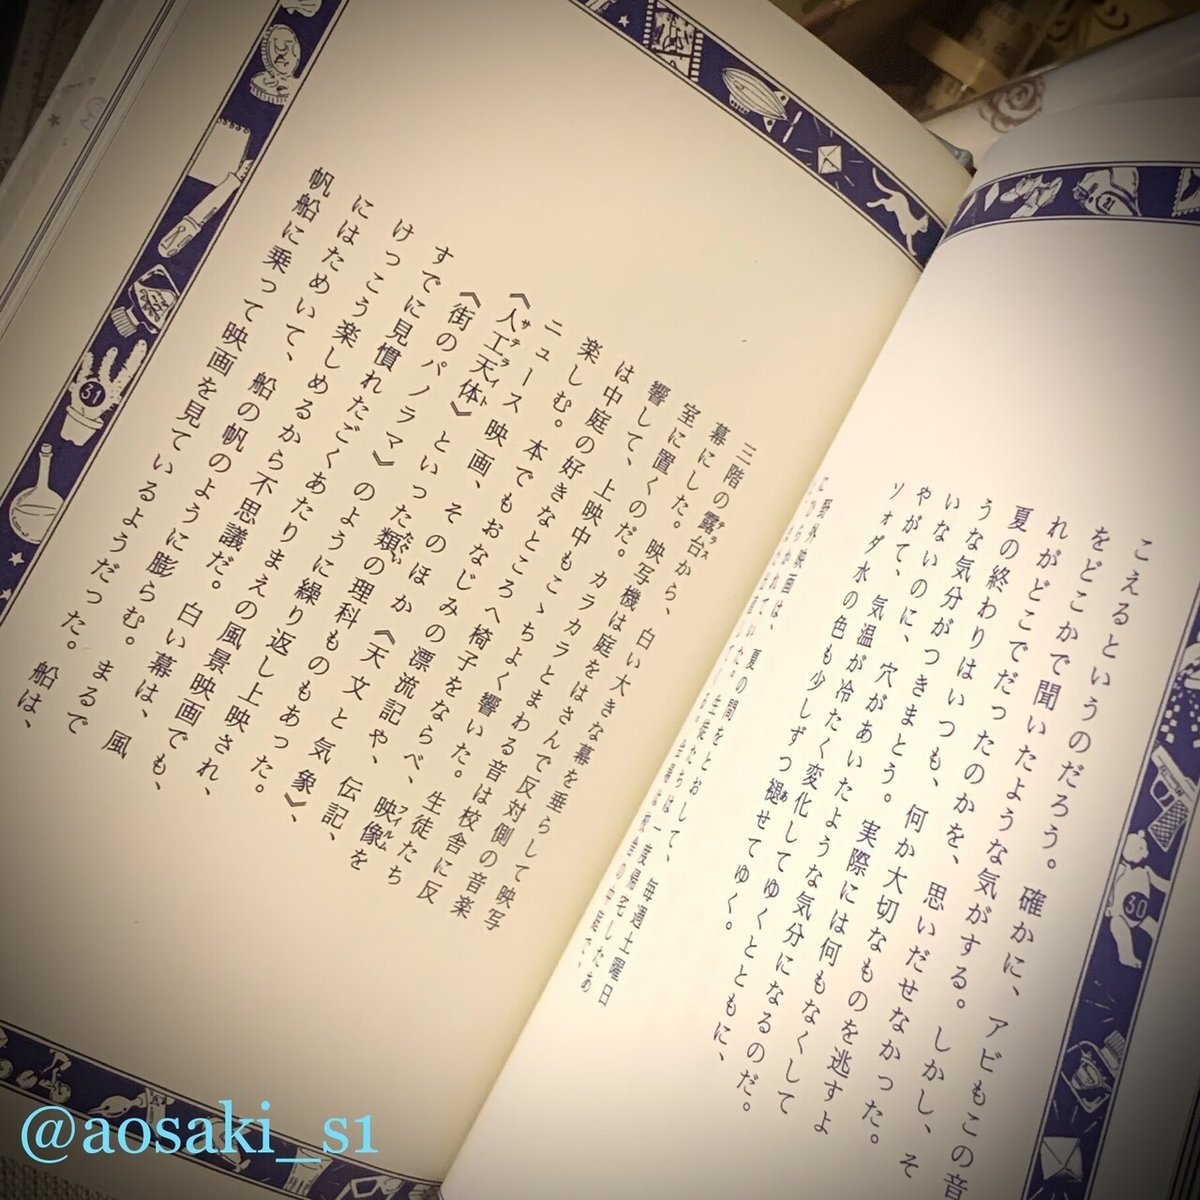 こえるというのだろう。確かに、アビもこの音
をどこかで聞いたような気がする。しかし、そ
れがどこでだったのかを、思いだせなかった。
夏の終わりはいつも、何か大切なものを逃すよ
うな気分がつきまとう。実際には何もなくして
いないのに、穴があいたような気分になるのだ。
やがて、気温が冷たく変化してゆくとともに、
ソォダ水の色も少しずつ褪せてゆく。
野外映画は、夏の間をとおして、毎週土曜日
三階の露台から、白い大きな幕を垂らして映写
幕にした。映写機は庭をはさんで反対側の音楽
室に置くのだ。カラカラとまわる音は校舎に反
響して、上映中もこゝちよく響いた。生徒たち
は中庭の好きなところへ椅子をならべ、映像を
楽しむ。本でもおなじみの漂流記や、伝記、
ニュース映画、そのほか《天文と気象》、
《人工天体》といった類の理科ものもあった。
《街のパノラマ》のように繰り返し上映され、
すでに見慣れたごくあたりまえの風景映画でも、
けっこう楽しめるから不思議だ。白い幕は、風
にはためいて、船の帆のように膨らむ。まるで
帆船に乗って映画を見ているようだった。船は、
30
31
@aosaki_s1